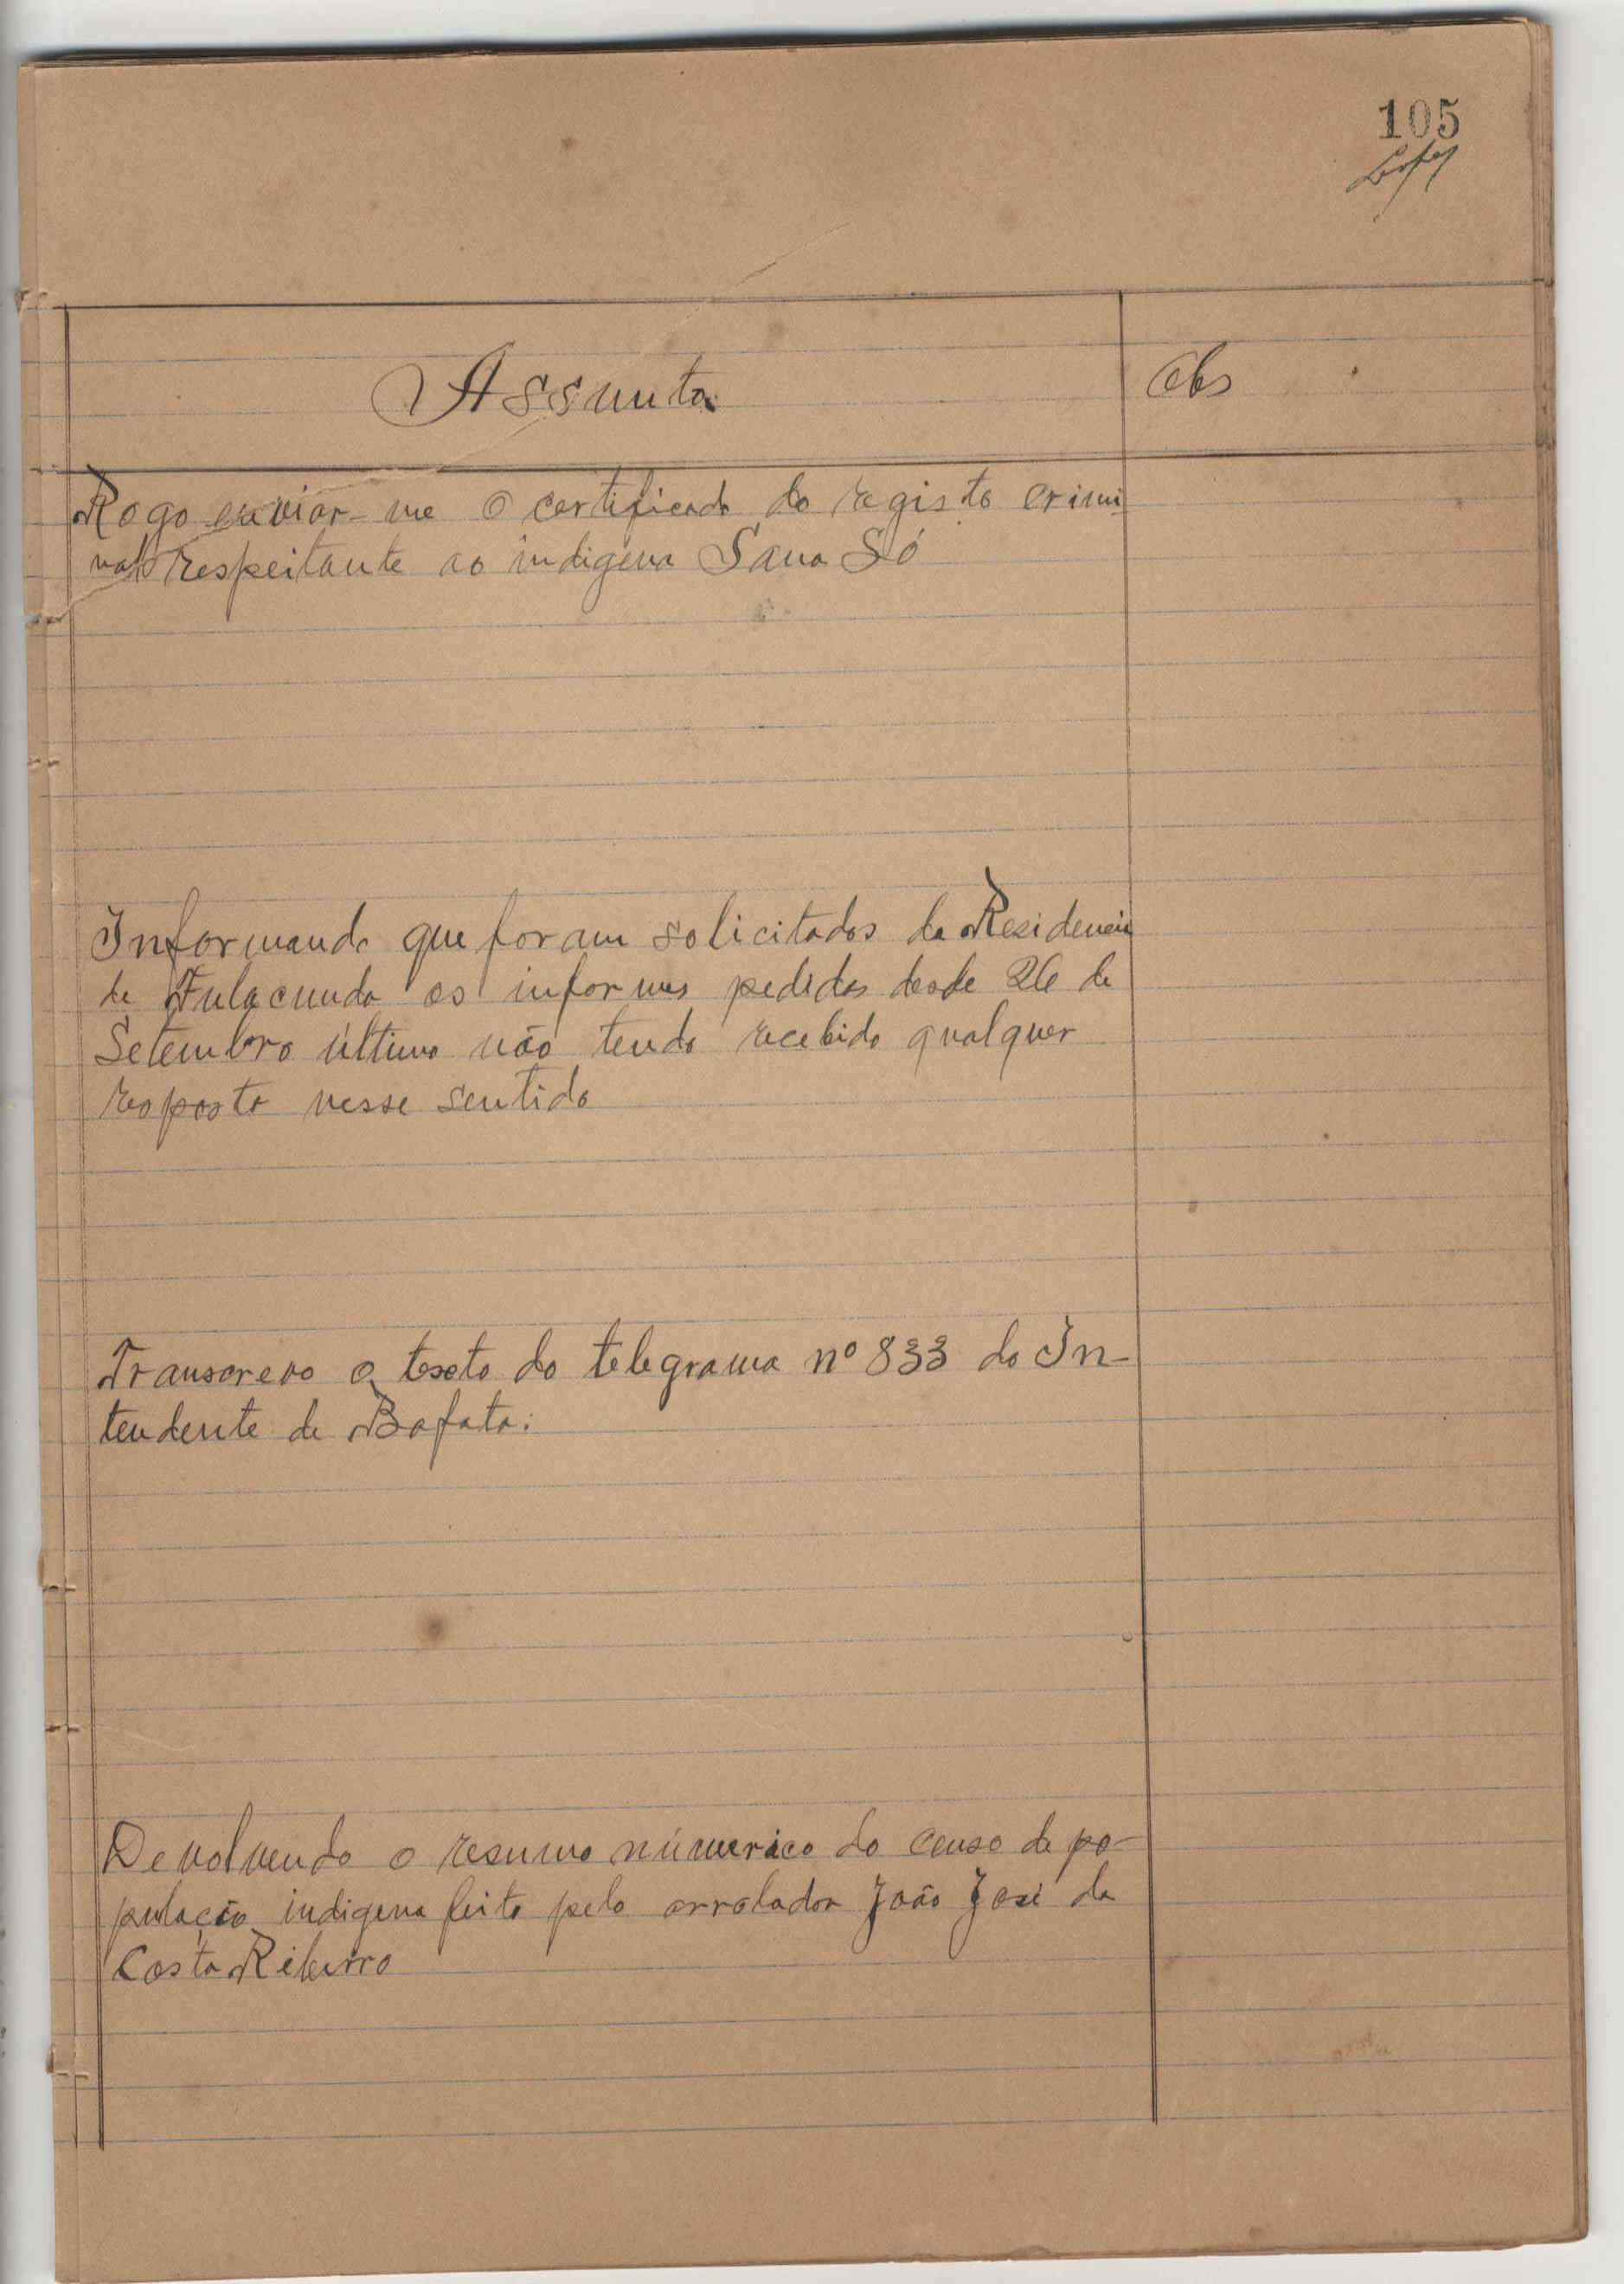 105
Lopes
Assunto
Obs
Rogo enviar-me o certificado do registo crimi
nal respeitante ao indigena Sana Só
Informando que foram solicitados da Residencia
de Fulacunda os informes pedidos desde 26 de
Setembro último não tendo recebido qualquer
resposta nesse sentido
Transcrevo o texto do telegrama nº 833 do In-
tendente de Bafata:
Devolvendo o resumo númerico do censo de po-
pulação indigena feito pelo arrolador João José da
Costa Ribeiro